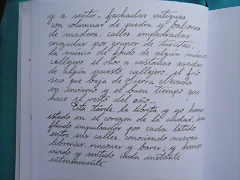 y a sentir, fachadas antiguas
con columnas de piedra y balcones
de madera, calles empedradas
cruzadas por grupos de turistas,
la música de fondo de algún músico
callejero, el olor a castañas asadas
de algún puesto callejero, el frío
seco que baja de Sierra Nevada
en invierno y el buen tiempo que
hace el resto del año...
Esta tarde la libreta y yo hemos
estado en el corazón de la ciudad, hemos
fluido empujados por cada latido
entre sus calles, conociendo nuevas
librerías, rincones y bares; y hemos
vivido y sentido cada instante
intensamente.